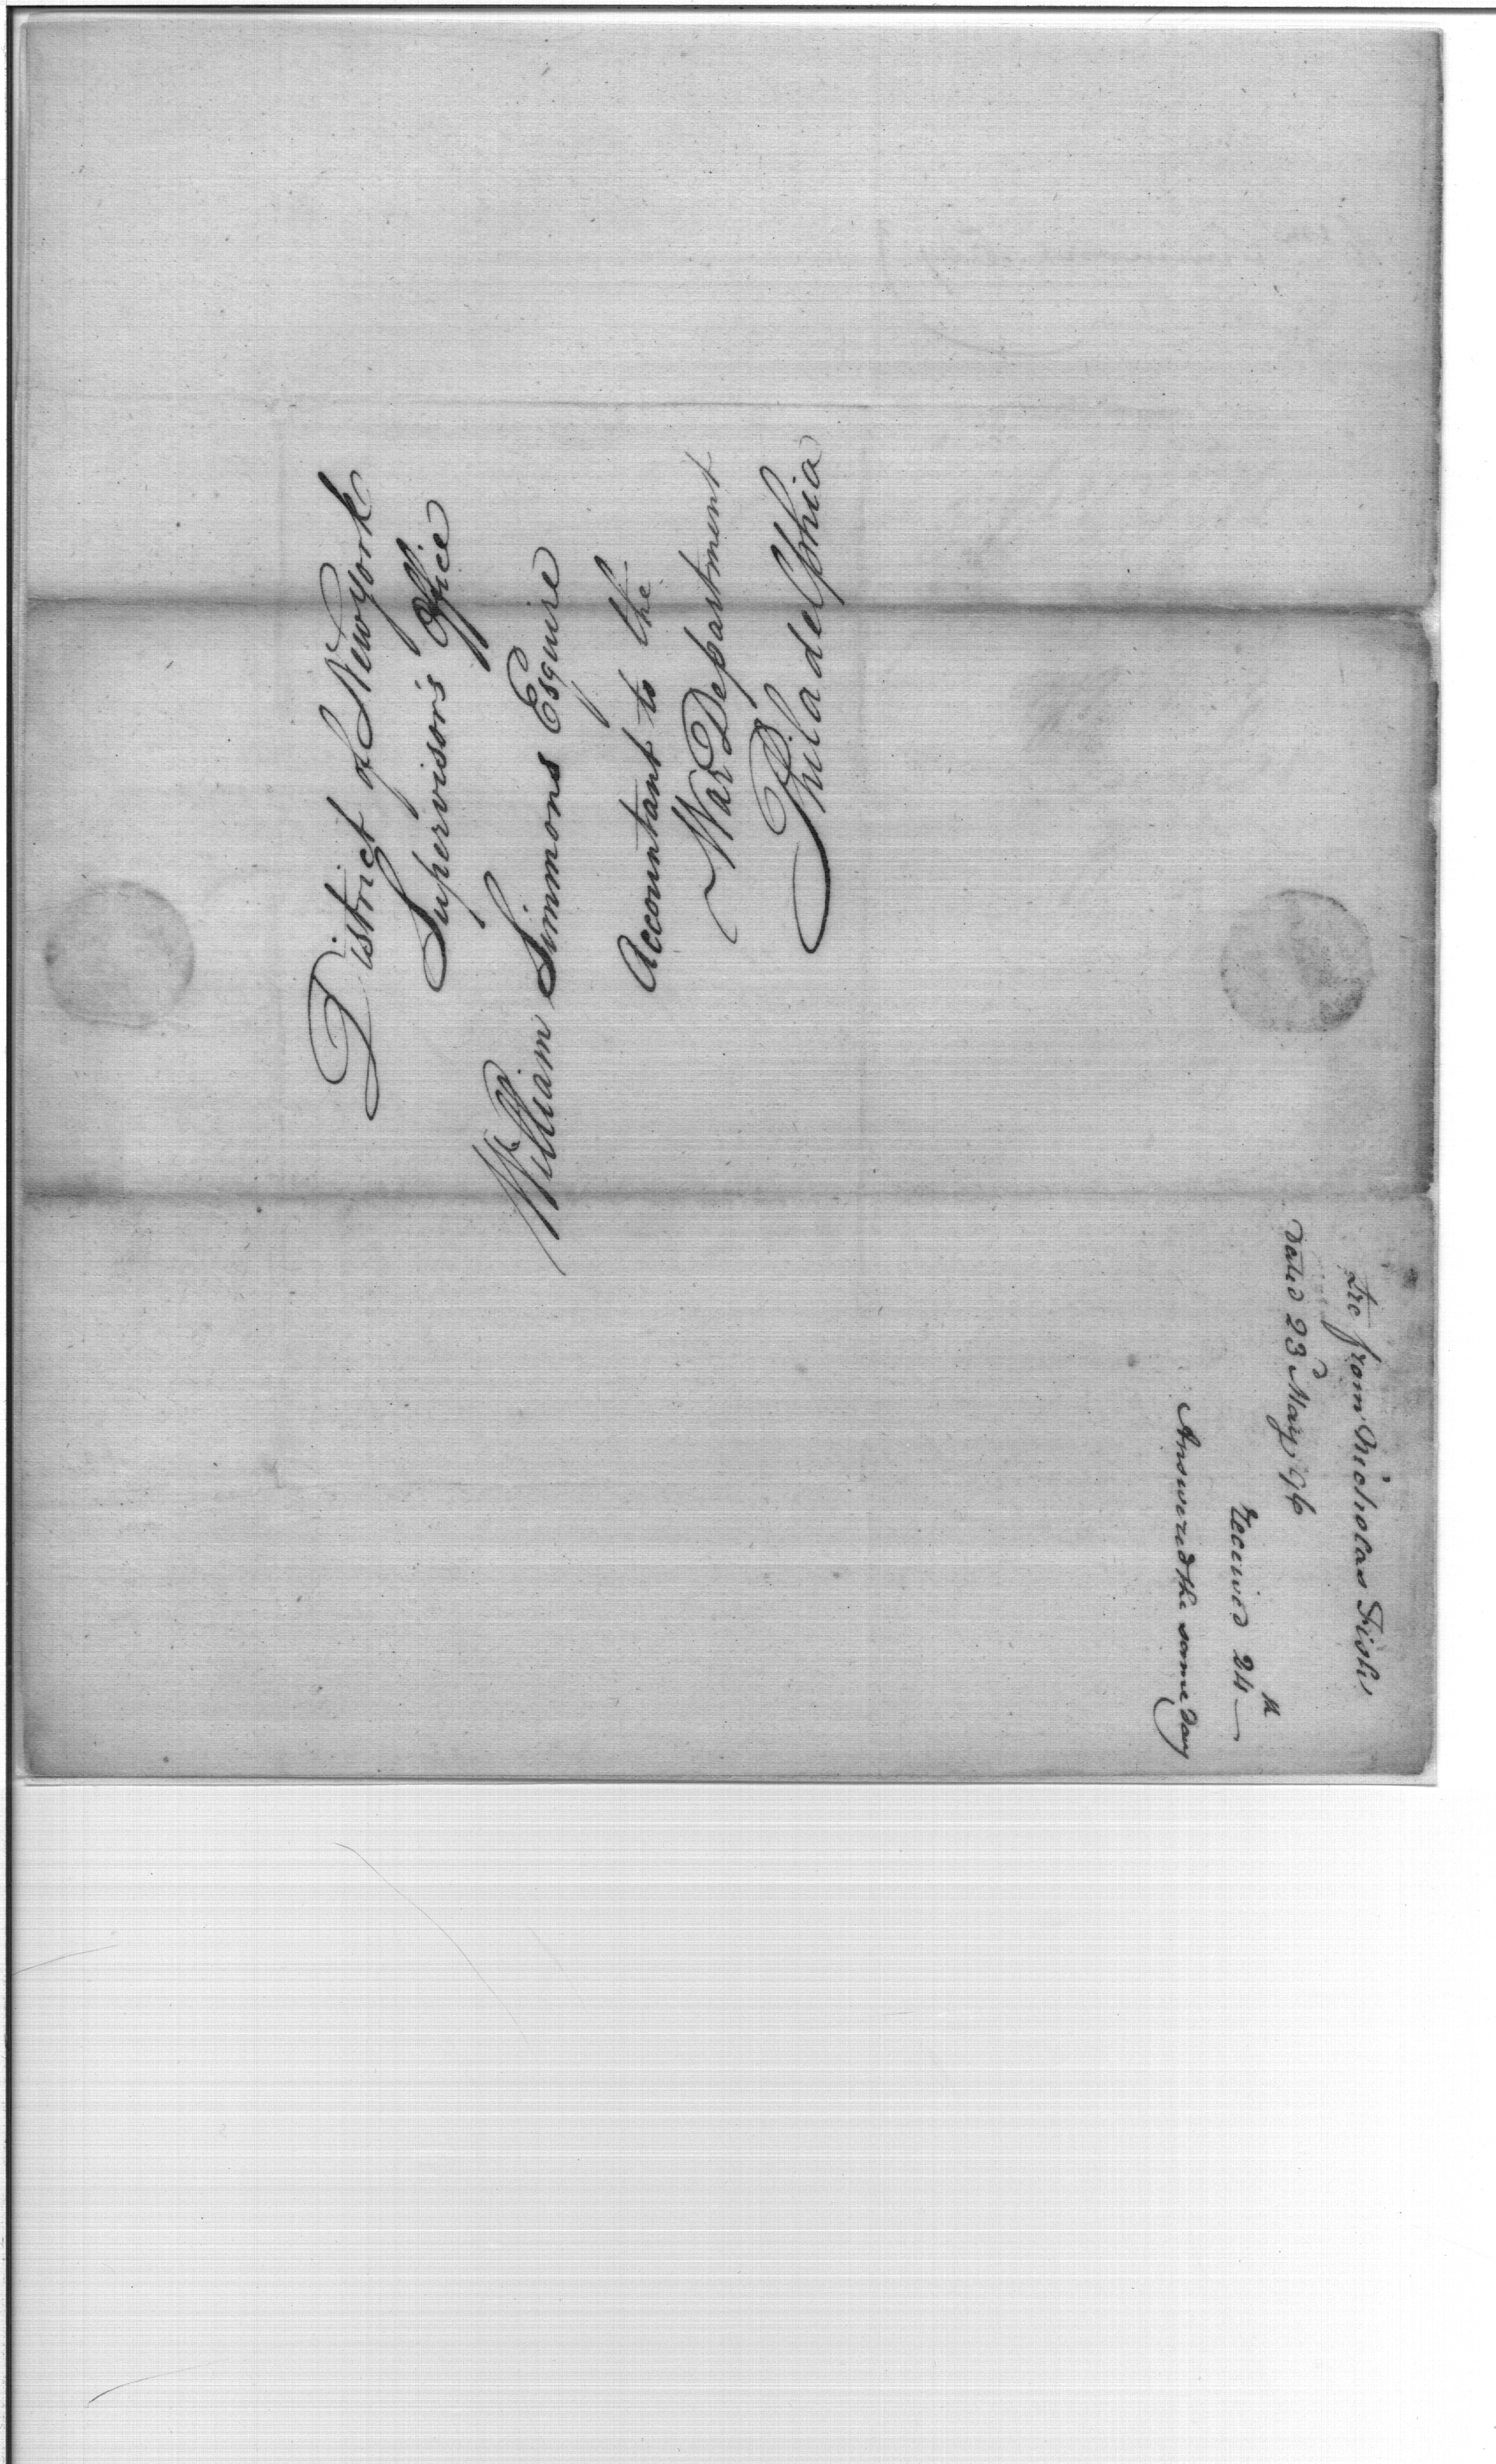 District of New York
Supervisor's Office
William Simmons Esquire
Accountant to the
War Department
Philadelphia
from Nicholas Fish
Dated 23d May 96
Received 24th
Answered the same day